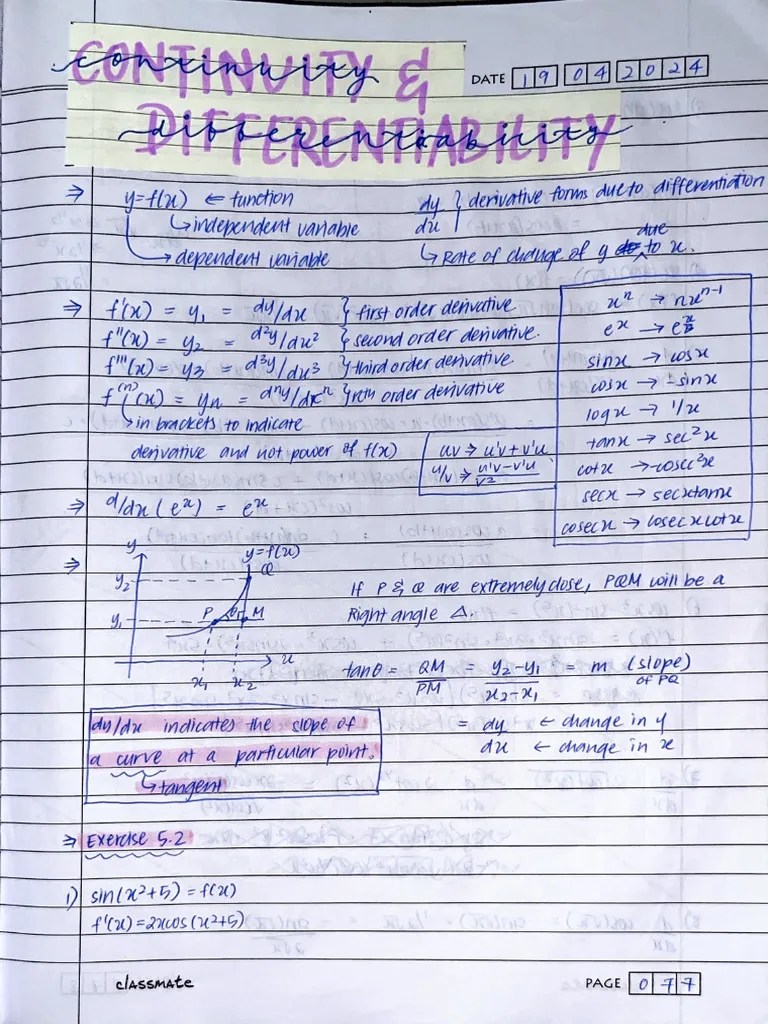 CONTINUITY &
continuity
DATE 19 04 2024
DIFFERENTIABILITY
differentiability
⇒ y=f(x) ← function
↳ independent variable
↳ dependent variable
dy/dx } derivative forms due to differentiation
due
↳ Rate of change of y to x.
⇒ f'(x) = y₁ = dy/dx } first order derivative
f''(x) = y₂ = d²y/dx² } second order derivative.
f'''(x) = y₃ = d³y/dx³ } third order derivative.
f⁽ⁿ⁾(x) = yn = dⁿy/dxⁿ } nth order derivative
↳ in brackets to indicate
derivative and not power of f(x)
uv ⇒ u'v + v'u
u/v ⇒ (u'v - v'u)/v²
xⁿ → nxⁿ⁻¹
eˣ →
sinx → cosx
cosx → -sinx
logx → 1/x
tanx → sec²x
cotx → -cosec²x
secx → secxtanx
cosecx → cosecxcotx
⇒ d/dx (eˣ) = eˣ
⇒ y
y=f(x)
y₂ Q
y₁ P θ M
x
x₁ x₂
If P & Q are extremely close, PQM will be a
Right angle Δ.
tanθ = QM/PM = (y₂-y₁)/(x₂-x₁) = m (slope)
of PQ
= dy ← change in y
dx ← change in x
dy/dx indicates the slope of
a curve at a particular point.
↳ tangent
⇒ Exercise 5.2
1) sin(x²+5) = f(x)
f'(x) = 2xcos(x²+5)
classmate
PAGE 077